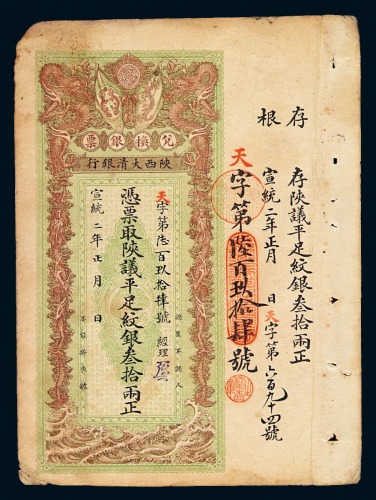 存根
存陝議平足紋銀叁拾兩正
宣統二年正月 日 天字第六百九十四號
天字第陸百玖拾肆號
票銀換兌
行銀清大西陝
天字第陸百玖拾肆號 經理
認票不認人
憑票取陝議平足紋銀叁拾兩正
宣統二年正月 日